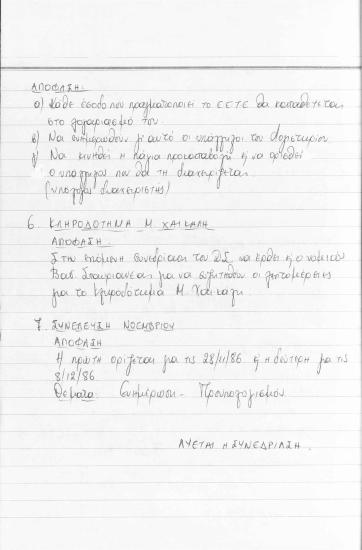 ΑΠΟΦΑΣΗ:
α) Κάθε έσοδο που πραγματοποιεί το ΕΕΤΕ θα κατατίθεται
στο λογαριασμό του.
β) Να ενημερωθούν γι αυτό οι υπάλληλοι του λογιστηρίου
γ) Να κινηθεί η πάγια προκαταβολή ή να ορισθεί
ο υπάλληλος που θα τη διαχειρίζεται.
(υπόλογος διαχειριστής)
6. ΚΛΗΡΟΔΟΤΗΜΑ Μ. ΧΑΙΚΑΛΗ
ΑΠΟΦΑΣΗ.
Στην επόμενη συνεδρίαση του ΔΣ να έρθει κι ο νομικός
Βασ. για να συζητηθούν οι λεπτομέρειες
για το κληροδότημα Μ. Χαικάλη.
7. ΣΥΝΕΛΕΥΣΗ ΝΟΕΜΒΡΙΟΥ
ΑΠΟΦΑΣΗ
Η πρώτη ορίζεται για τις 28/11/86 κι η δεύτερη για τις
8/12/86
Θέματα: Ενημέρωση - Προϋπολογισμός
ΛΥΕΤΑΙ Η ΣΥΝΕΔΡΙΑΣΗ.